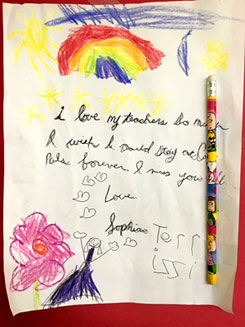 I love my teachers so much
I wish I could stay at
Pals forever. I miss you
Love
Sophia